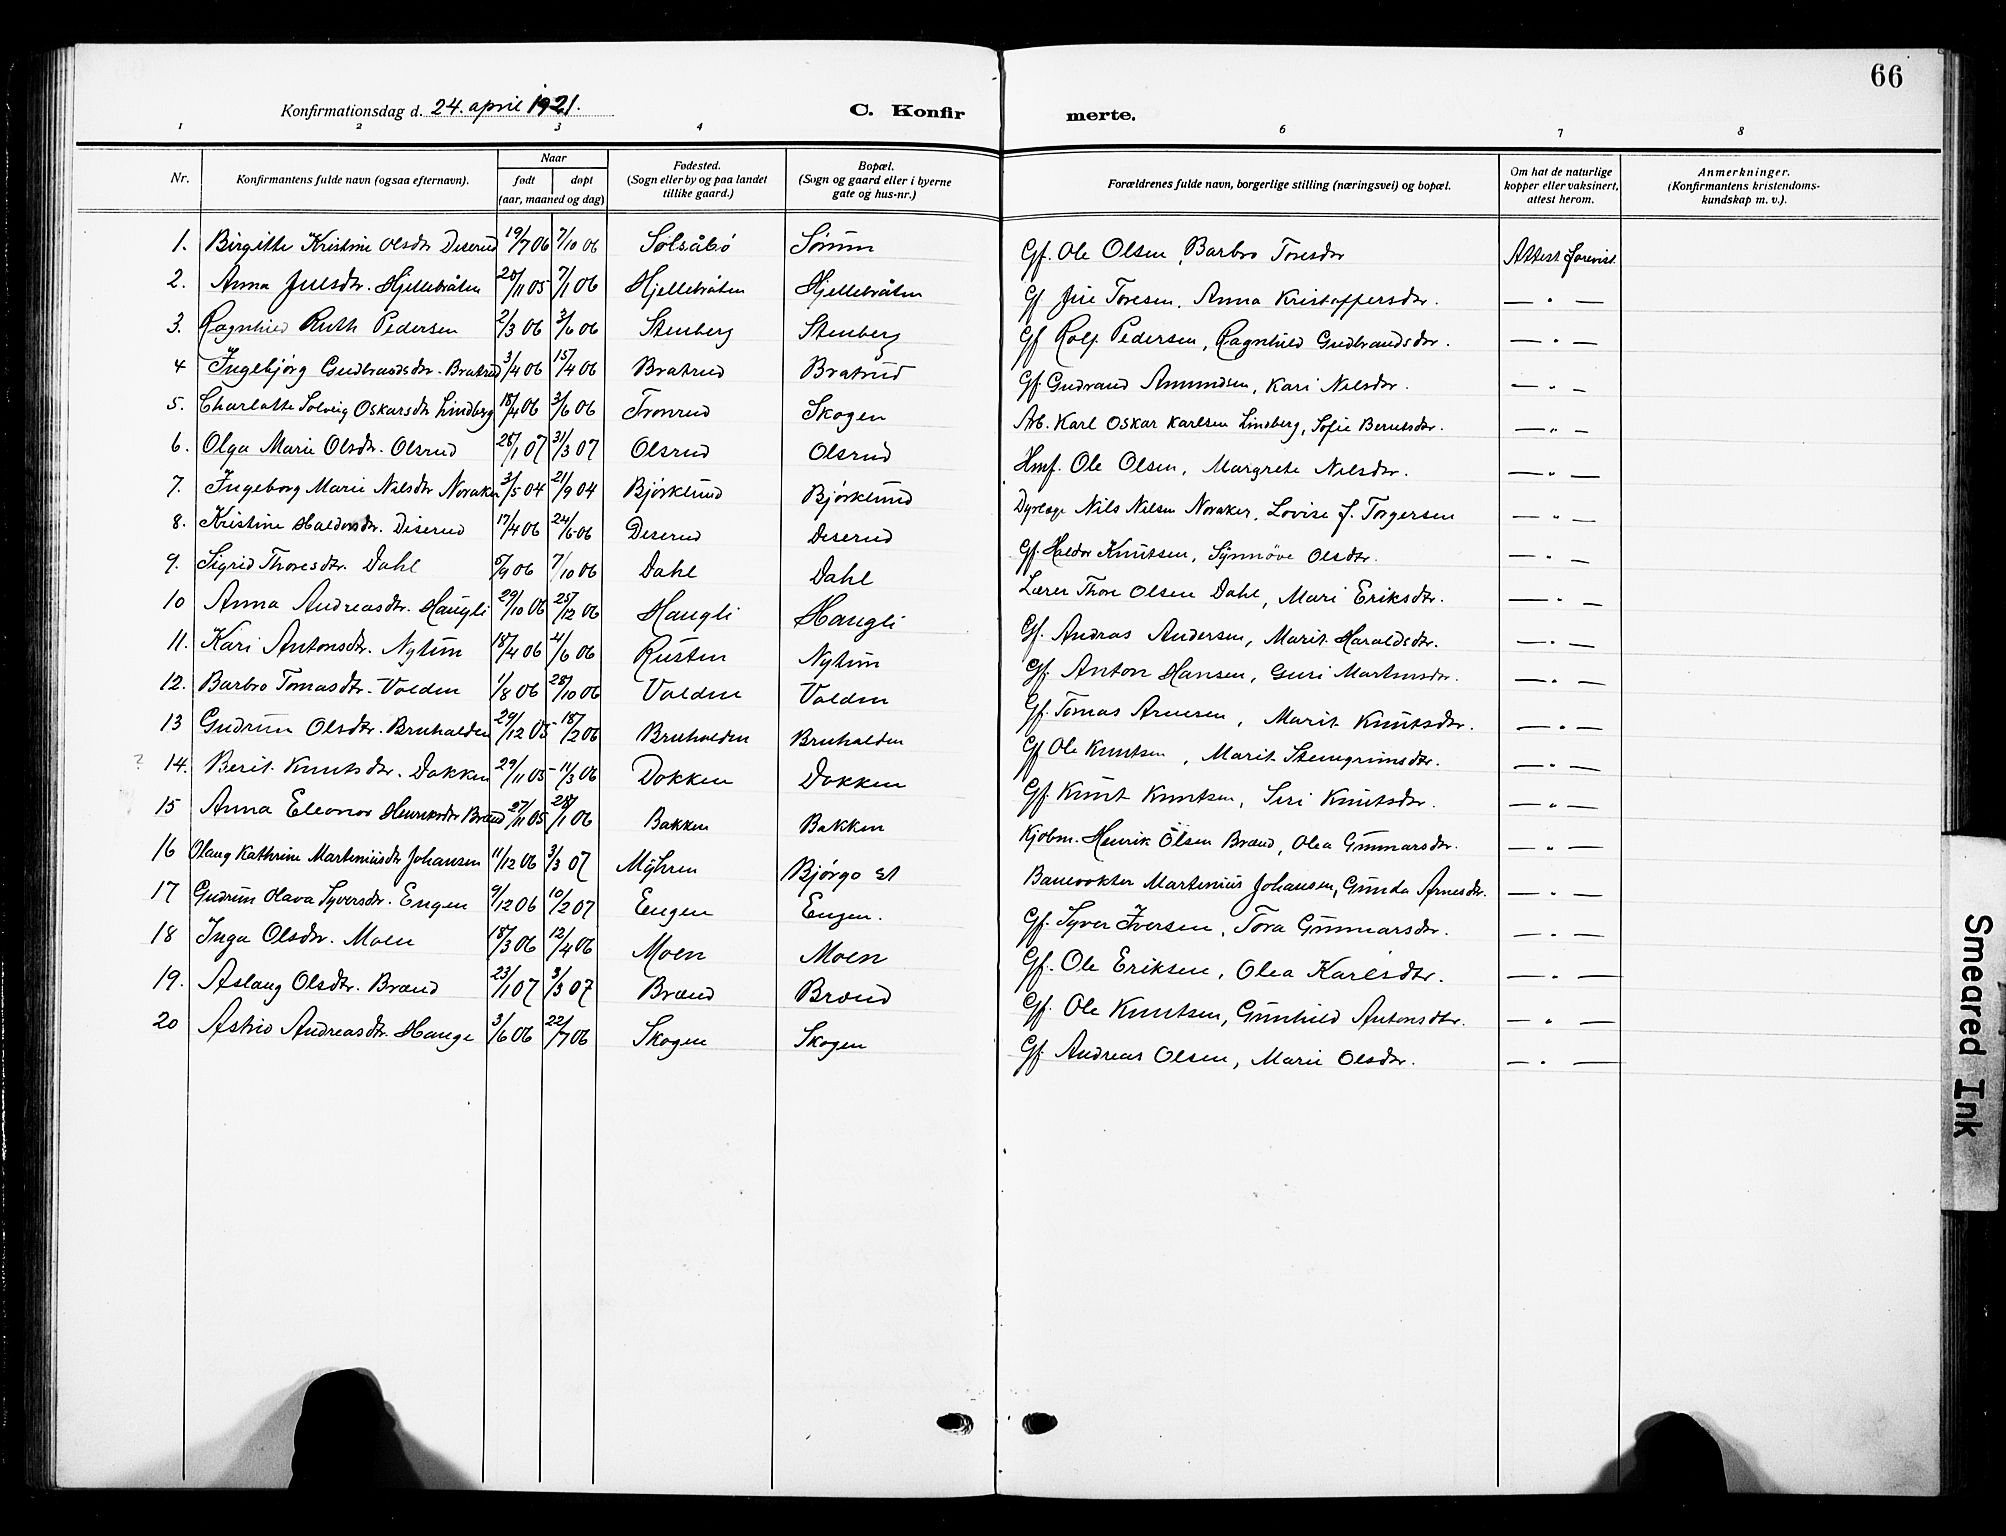 66
Konfirmationsdag d. 24. april 1921. C. Konfir merte.
1 2 3 4 6 7 8
Nr. Konfirmantens fulde navn (ogsaa efternavn). Naar født døpt (aar, maaned og dag) Fødested. (Sogn eller by og paa landet tillike gaard.) Bopæl. (Sogn og gaard eller i byerne gate og hus-nr.) Forældrenes fulde navn, borgerlige stilling (næringsvei) og bopæl. Om hat de naturlige kopper eller vaksinert, attest herom. Anmerkninger. (Konfirmantens kristendoms-kundskap m. v.).
1. Birgitte Kristine Olsdtr Diserud 19/7 06 7/10 06 Sølsåbø Sørum Gf. Ole Olsen, Barbro Toresdtr Attest forevist.
2. Anna Julsdtr. Hjellebråten 20/11 05 7/1 06 Hjellebråten Hjellebråten Gf Jul Toresen, Anna Kristoffersdtr. — " —
3. Ragnhild Ruth Pedersen 2/3 06 3/6 06 Stenberg Stenberg Gf Rolf Pedersen, Ragnhild Gudbrandsdtr. — " —
4 Ingebjørg Gudbrandsdtr. Bratrud 3/4 06 15/4 06 Bratrud Bratrud Gf. Gudrand Amundsen, Kari Nilsdtr. — " —
5. Charlotte Solveig Oskarsdtr Lindberg 18/4 06 3/6 06 Tronrud Skogen Arb. Karl Oskar Karlsen Lindberg, Sofie Berntsdtr. — " —
6. Olga Marie Olsdtr. Olsrud 28/1 07 31/3 07 Olsrud Olsrud Hmf. Ole Olsen, Margrete Nilsdtr. — " —
7. Ingeborg Marie Nilsdtr Noraker 3/5 04 21/9 04 Bjørklund Bjørklund Dyrlæge Nils Nilsen Noraker, Lovise J. Torgersen — " —
8. Kristine Haldorsdtr. Diserud 17/4 06 24/6 06 Diserud Diserud Gf. Haldor Knutsen, Synnøve Olsdtr. — " —
9. Sigrid Thoresdtr. Dahl 5/9 06 7/10 06 Dahl Dahl Lærer Thore Olsen Dahl, Mari Eriksdtr. — " —
10 Anna Andreasdtr. Haugli 29/10 06 25/12 06 Haugli Haugli Gf. Andras Andersen, Marit Haraldsdtr. — " —
11. Kari Antonsdtr. Nytun 18/4 06 4/6 06 Rusten Nytun Gf. Anton Hansen, Guri Martinsdtr. — " —
12. Barbro Tomasdtr. Volden 1/8 06 28/10 06 Volden Volden Gf. Tomas Arnesen, Marit Knutsdtr. — " —
13 Gudrun Olsdtr. Bruhalden 29/12 05 - 18/2 06 Bruhalden Bruhalden Gf Ole Knutsen, Marit Steingrimsdtr. — " —
? 14. Berit Knutsdtr. Dokken 29/11 05 - 11/3 06 Dokken Dokken Gf. Knut Knutsen, Siri Knutsdtr. — " —
15 Anna Eleonor Henriksdtr Brænd 27/11 05 28/1 06 Bakken Bakken Kjøbm. Henrik Olsen Brænd, Olea Gunnarsdtr. — " —
16 Olaug Kathrine Martiniusdtr Johansen 11/12 06 3/3 07 Myhren Bjørgo st Banevokter Martinius Johansen, Gunda Arnesdtr. — " —
17 Gudrun Olava Syversdtr. Engen 9/12 06 10/2 07 Engen Engen. Gf. Syver Iversen, Tora Gunnarsdtr. — " —
18 Inga Olsdtr. Moen 18/3 06 12/4 06 Moen Moen Gf. Ole Eriksen, Olea Karlsdtr. — " —
19. Aslaug Olsdtr. Brænd 23/1 07 3/3 07 Brænd Brænd Gf. Ole Knutsen, Gunhild Antonsdtr. — " —
20 Astrid Andreasdtr. Hauge 3/6 06 22/7 06 Skogen Skogen Gf. Andreas Olsen, Marie Olsdtr. — " —
Smeared Ink